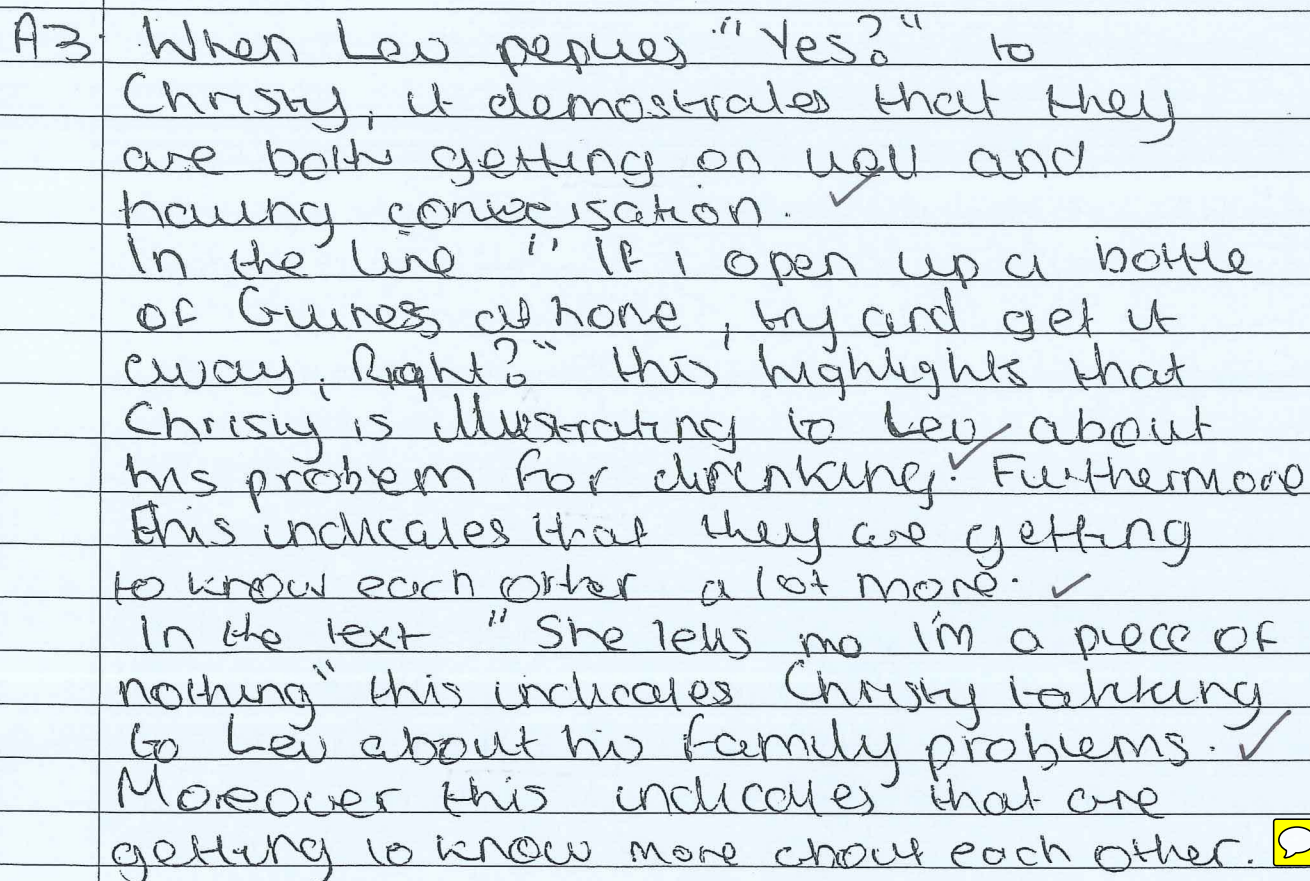 A3 When Lev pepues "Yes?" to
Christy, it demostrates that they
are both getting on well and
having conversation.
In the line "If i open up a bottle
of Guiness at home, try and get it
away, Right?" this highlights that
Christy is illustrating to Lev about
his probem for drinking. Furthermore
this indicates that they are getting
to know each other a lot more.
In the text "She tells me I'm a piece of
nothing" this indicates Christy talking
to Lev about his family problems.
Moreover this indicates that are
getting to know more about each other.